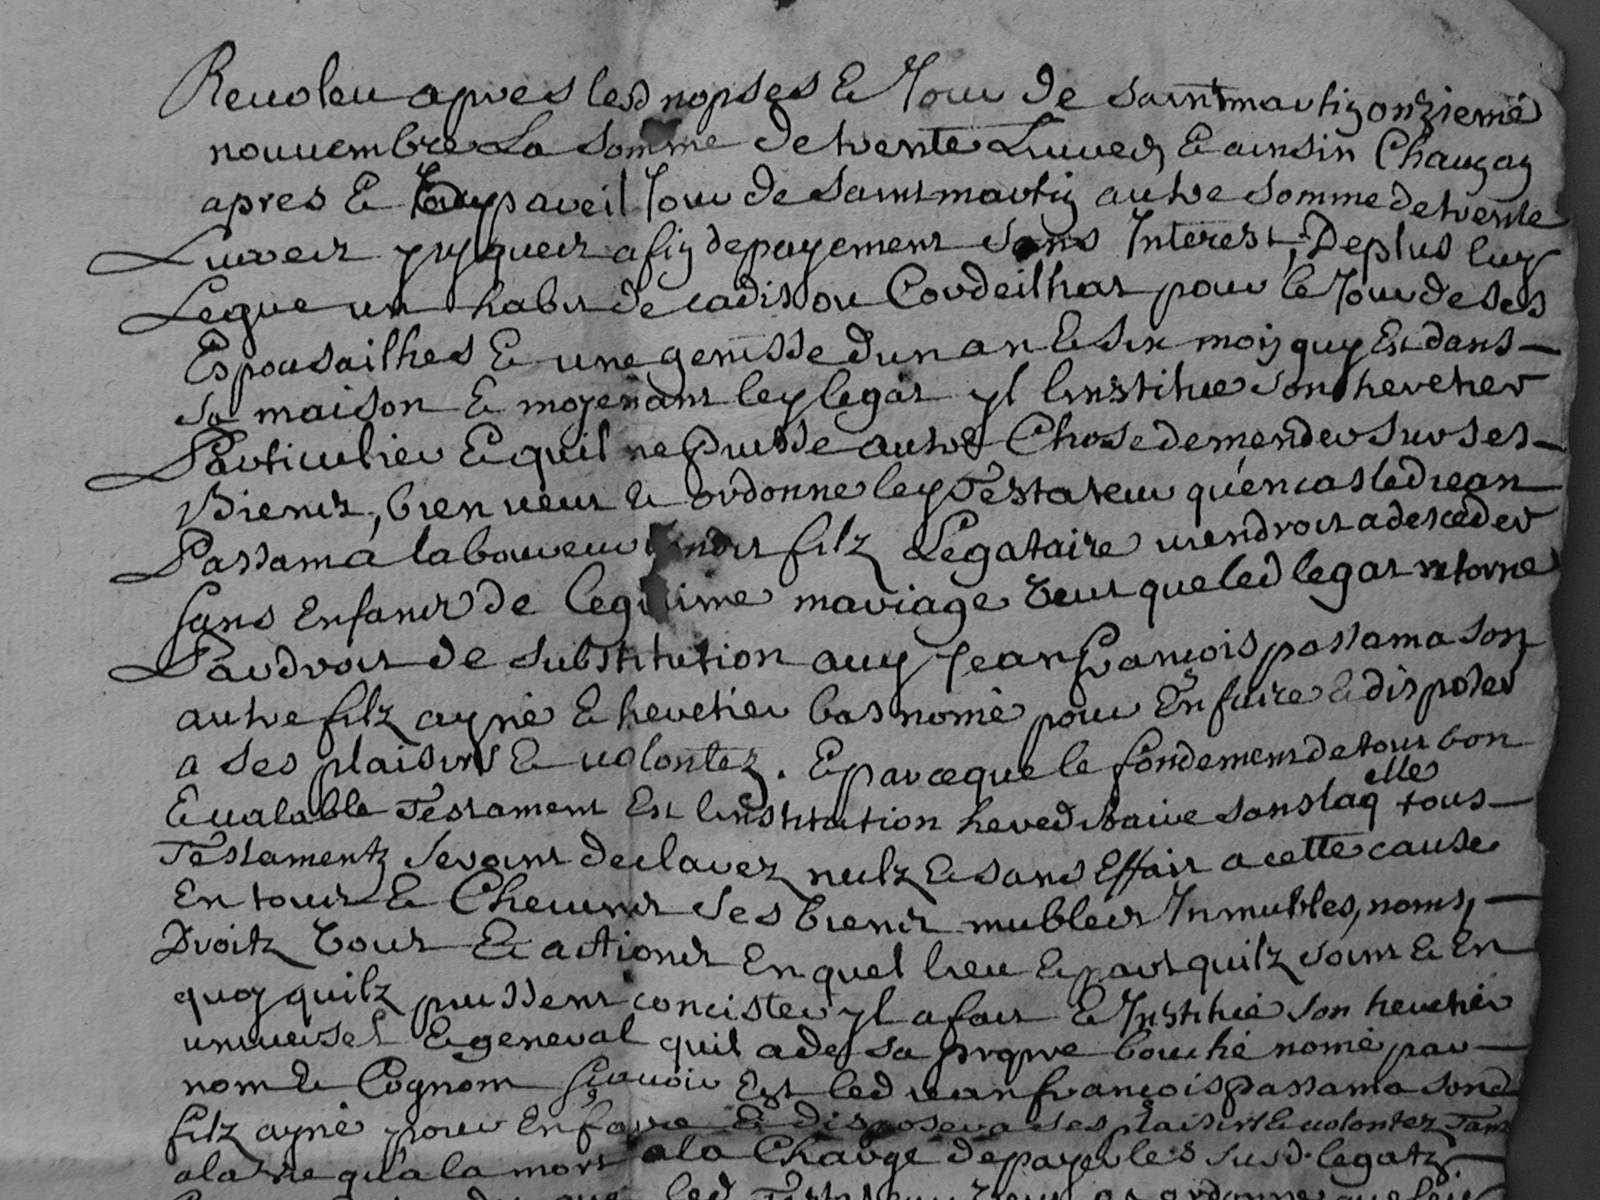 Revoleu apres lesd nopses & Jour de saint martin onzieme
nouvembre La somme de trente Livred & ainsin Chauqan
apres & pareil Jour de saint martin autre somme de trente
Livrer jusquer a fin de payement sans Interest, De plus luy
Legue un habit de cadis ou Cordeilhat pour le Jour de ses
Espousailhes & une genisse dun an & six mois quy Est dans
sa maison & moyenant ley legat yl linstitue son heretier
Particulier & quil ne puisse autre Chose demender sur ses
Biens, bien veut & ordonne ley Testateur quen cas led jean
Passama laboureur filz Legataire viendroit a desceder
sans Enfans de legitime mariage veut que led legat retorne
Par droit de substitution auy Jean François passama son
autre filz ayné & heretier bas nomé pour En faire & disposer
a ses plaisirs & volontez. & parceque le fondement de tout bon
& valable Testament Est linstitution hereditaire sans laqelle tous
Testamentz seroint declarez nulz & sans Effait a cette cause
En touts & Chesuns ses biens mubles Inmubles, noms,
Droitz voix & actions En quel lieu & part quilz soint & En
quoy quilz puissent concister yl a fait & Institué son heretier
universel & general quil a de sa propre bouche nomé par
nom & Cognom sçavoir Est led jean françois passama sond
filz ayné pour En faire & disposer a ses plaisirs & volontez Tant
a la vie qua la mort a la Charge de payer les susd. legatz
led Testateur veut & ordonne que